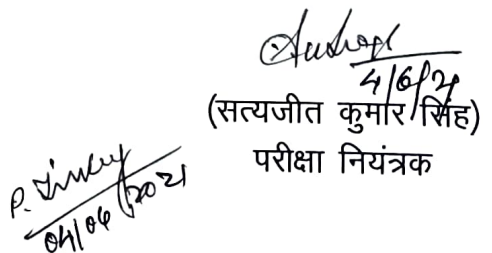 4/6/21
(सत्यजीत कुमार सिंह)
परीक्षा नियंत्रक
04/06/2021